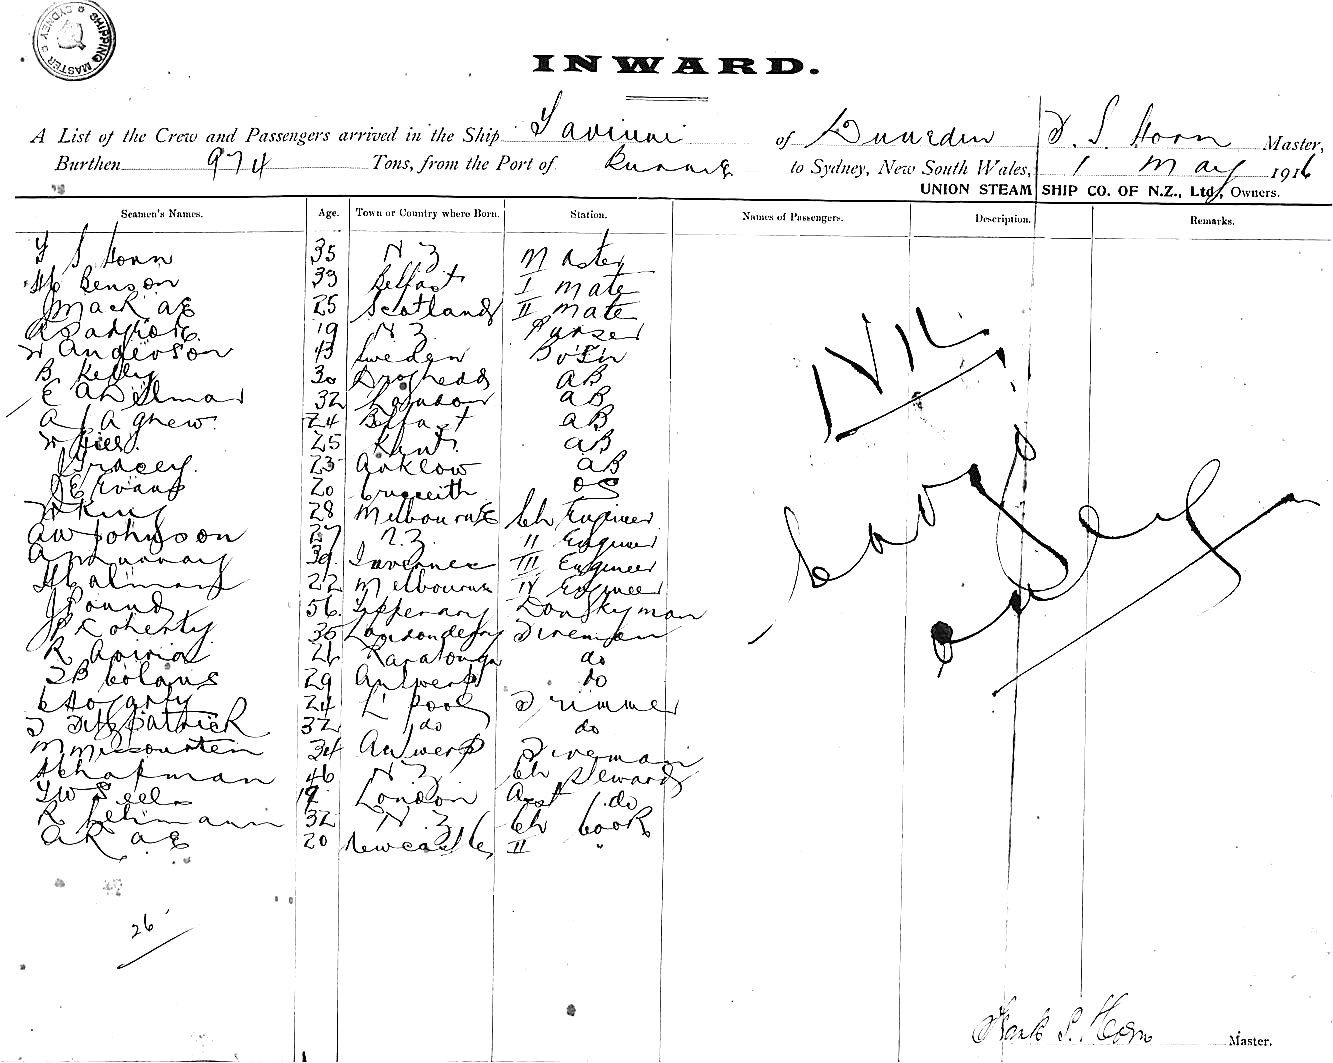 SHIPPING MASTER SYDNEY
INWARD.
A List of the Crew and Passengers arrived in the Ship Taviuni of Dunedin F. S. Horn Master,
Burthen 974 Tons, from the Port of to Sydney, New South Wales, 1 May 1916
UNION STEAM SHIP CO. OF N.Z., Ltd, Owners.
Seamen's Names. Age. Town or Country where Born. Station. Names of Passengers. Description. Remarks.
F S Horn 35 N Z Master
Benson 33 Belfast I Mate
J MacRae 25 Scotland II Mate
19 N Z Purser
W Anderson 43 Sweden Bo'sn
B Kelly 30 Drogheda AB
E A Dilmar 32 London AB
A J Agnew 24 Belfast AB
W Gill 25 Kent AB
J Tracey 23 Arklow AB
J E Evans 20 Criccieth OS
W King 28 Melbourne Ch Engineer
A W Johnson 27 N.Z. II Engineer
A Murray 39 Inverness III Engineer
22 Melbourne IV Engineer
J Pound 56 Tipperary Donkyman
P Coherty 35 Londonderry Fireman
R 26 Raratonga do
29 Antwerp do
C Hogarty 24 L'pool Trimmer
T Fitzpatrick 32 do do
M 34 Antwerp Fireman
A Chapman 46 N Z Ch Steward
F W Seel 19 London Asst do
R 32 N Z Ch Cook
A Rae 20 Newcastle II "
NIL
Cargo
only
26
Frank S. Horn Master.